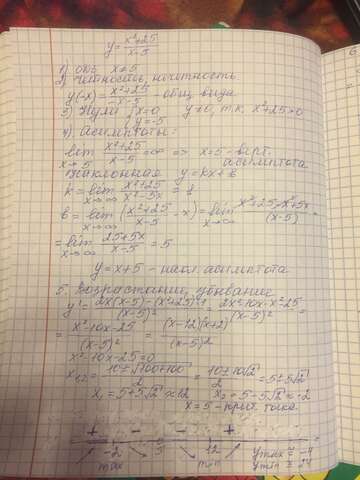 y = x²+25 / x-5
1) ООФ x≠5
2) Чётность, нечётность
y(-x) = x²+25 / -x-5 - общ. вида
3) Нули {x=0 y=-5 y≠0, т.к. x²+25>0
4) Асимптоты:
lim x→5 x²+25 / x-5 = ∞ => x=5 - верт. асимптота
Наклонная y=kx+b
k = lim x→∞ x²+25 / x²-5x = 1
b = lim x→∞ (x²+25 / x-5 - x) = lim x→∞ x²+25-x²+5x / (x-5) =
= lim x→∞ 25+5x / x-5 = 5
y=x+5 - накл. асимптота
5. Возрастание, убывание
y' = 2x(x-5)-(x²+25)·1 / (x-5)² = 2x²-10x-x²-25 / (x-5)² =
= x²-10x-25 / (x-5)² = (x-12)(x+2) / (x-5)²
x²-10x-25=0
x₁,₂ = 10±√100+100 / 2 = 10±10√2 / 2 = 5±5√2
x₁ = 5+5√2 ≈ 12 x₂ = 5-5√2 ≈ -2
x=5 - крит. точка
+ - - +
-2 5 12 ymax ≈ -4
max min ymin ≈ 24